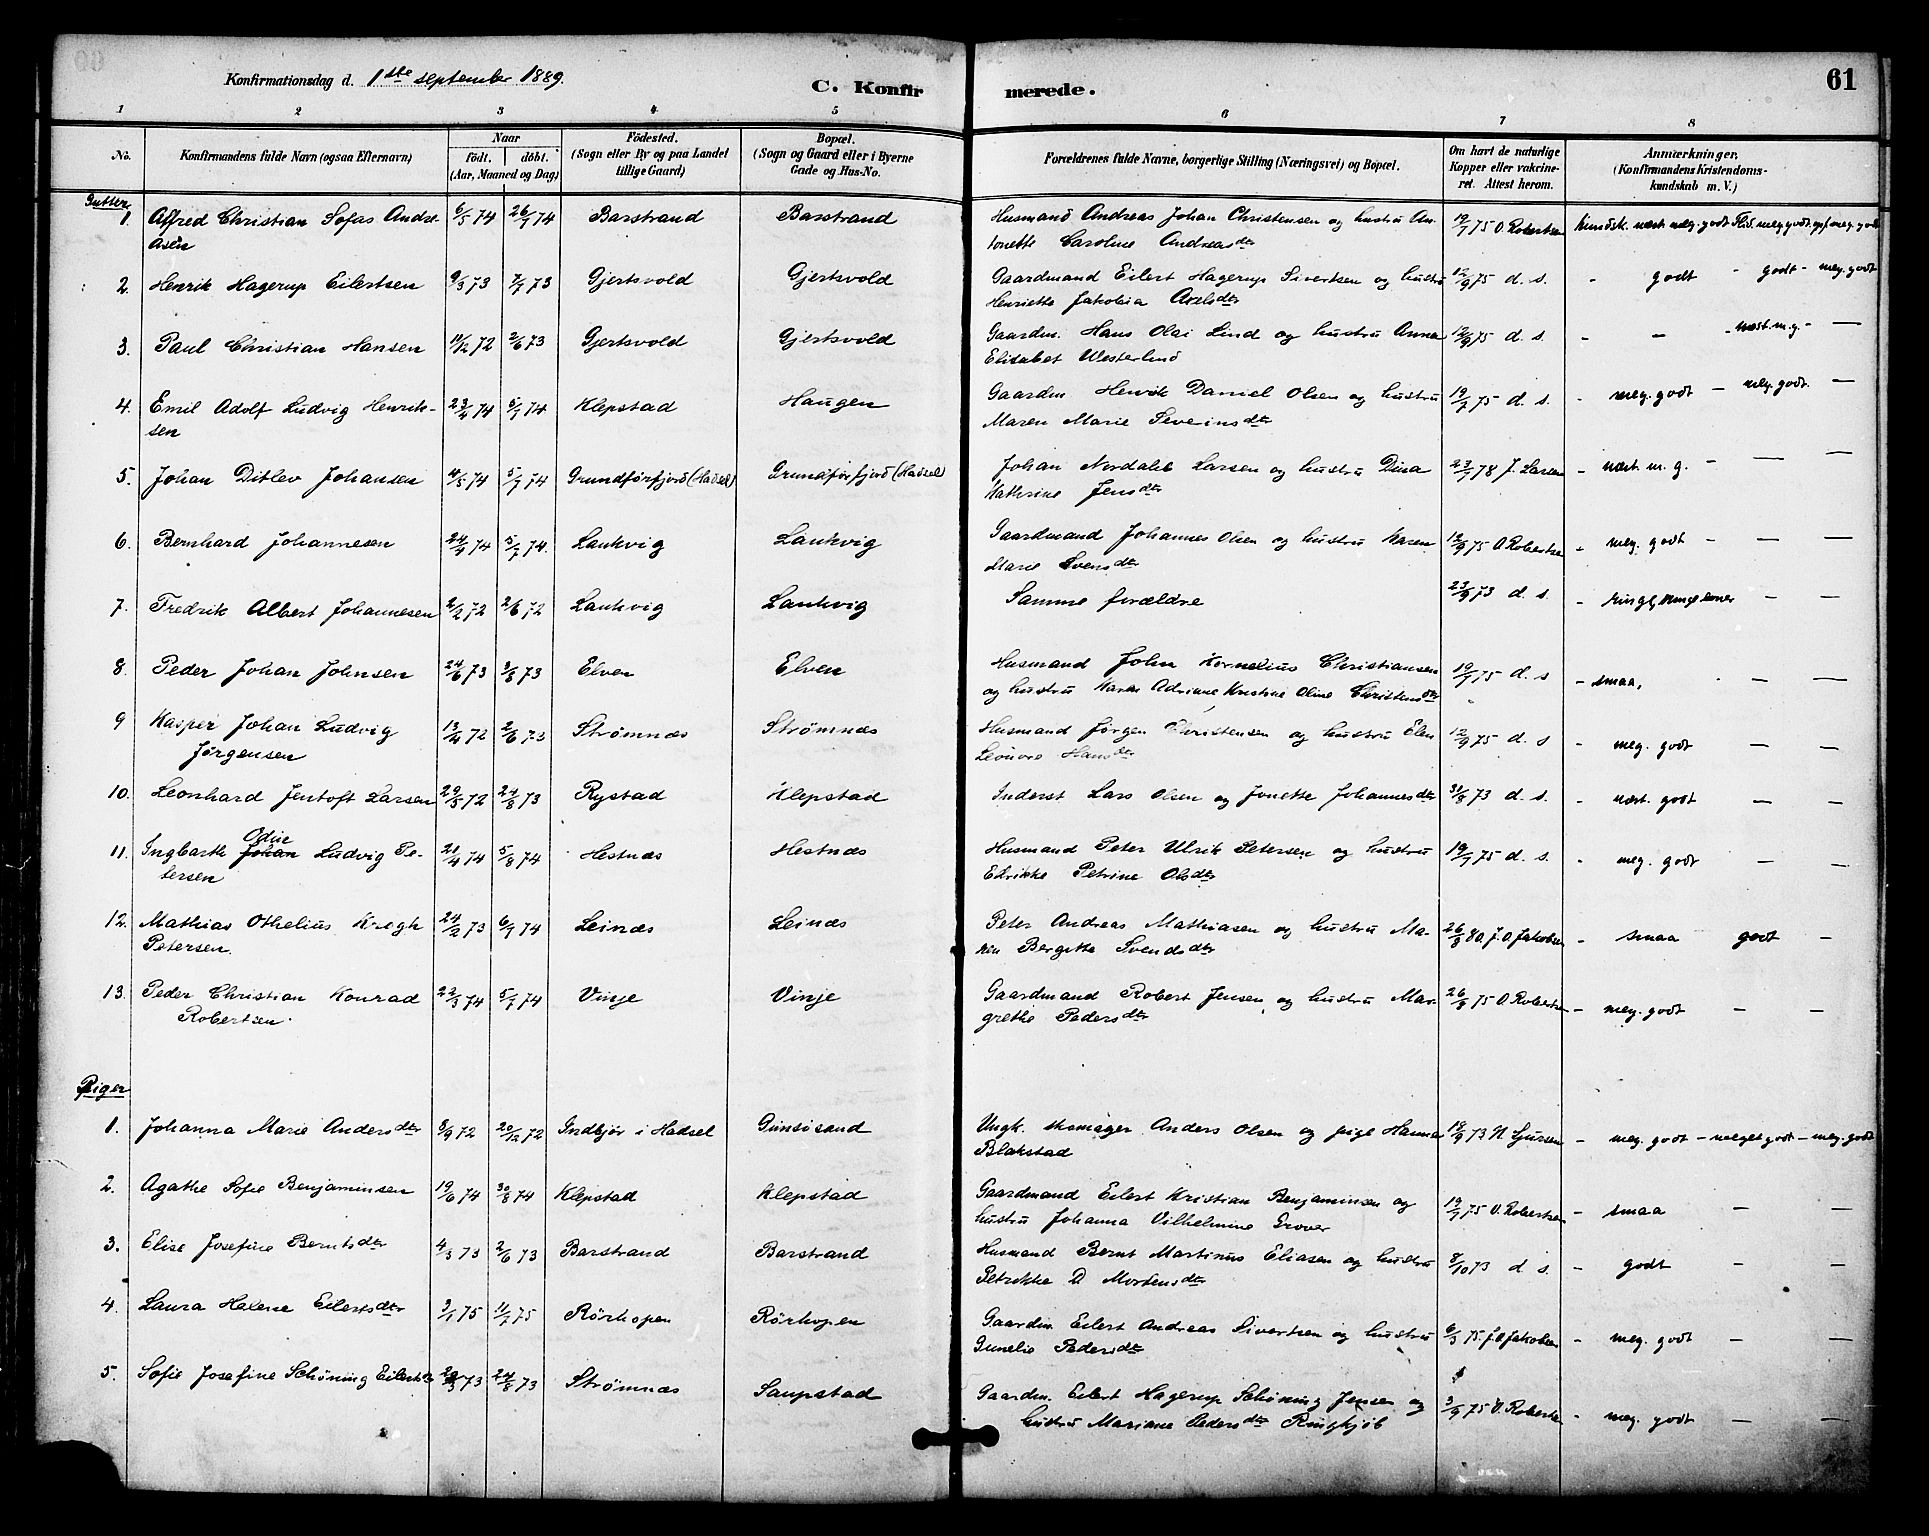 Konfirmationsdag d. 1ste september 1889.
C. Konfirmerede.
61
1 2 3 4 5 6 7 8
No.
Konfirmandens fulde Navn (ogsaa Efternavn)
Naar
födt. döbt.
(Aar, Maaned og Dag)
Födested.
(Sogn eller By og paa Landet
tillige Gaard)
Bopæl.
(Sogn og Gaard eller i Byerne
Gade og Hus-No.
Forældrenes fulde Navne, borgerlige Stilling (Næringsvei) og Bopæl.
Om havt de naturlige
Kopper eller vakcine-
ret. Attest herom.
Anmærkninger.
(Konfirmandens Kristendoms-
kundskab m. V.)
Gutter
1. Alfred Christian Sofas Andre- 6/5 74 26/7 74 Barstrand Barstrand Husmand Andreas Johan Christensen og hustru An- 19/7 75 O. Robertsen Kundsk. næst meg. godt Flid. meg godt. opf meg. godt
asen tonette Caroline Andreasdtr
2. Henrik Hagerup Eilertsen 9/3 73 7/7 73 Gjertsvold Gjertsvold Gaardmand Eilert Hagerup Sivertsen og hustru 12/9 75 d. s. - godt - godt - meg. godt
Henriette Jakobia Axelsdtr
3. Paul Christian Hansen 11/12 72 2/6 73 Gjertsvold Gjertsvold Gaardm. Hans Olai Lind og hustru Anna 12/9 75 d. s. - - - næst. m. g. - -
Elisabet Westerlind
4. Emil Adolf Ludvig Henrik- 23/4 74 5/7 74 Klepstad Haugen Gaardm Henrik Daniel Olsen og hustru 19/7 75 d. s. - meg. godt - meg. godt. -
sen Maren Marie Severinsdtr
5. Johan Ditlev Johansen 4/5 74 5/7 74 Grundførfjord (Hadsel) Grundførfjord (Hadsel) Johan Nordahl Larsen og hustru Dina 23/7 78 J. Larsen - næst. m. g. - - -
Kathrine Jensdtr
6. Bernhard Johannesen 24/4 74 5/7 74. Laukvig Laukvig Gaardmand Johannes Olsen og hustru Karen 12/9 75 O. Robertsen - meg. godt - - -
Marie Svensdtr
7. Fredrik Albert Johannesen 2/2 72 2/6 72 Laukvig Laukvig Samme forældre 23/9 73 d. s. - - -
8. Peder Johan Johnsen 24/6 73 3/8 73 Elven Elven Husmand John Kornelius Christiansen 19/7 75 d. s - smaa, - -
og hustru Karen Adriane Kristine Oline Christensdtr
9 Kasper Johan Ludvig 13/4 72 2/6 73 Strømnæs Strømnæs Husmand Jørgen Christensen og hustru Elen 12/9 75 d. s - meg. godt - -
Jørgensen Leonore Hansdtr
10. Leonhard Jentoft Larsen 29/5 72 24/8 73 Rystad Klepstad Inderst Lars Olsen og Jonette Johannesdtr 31/8 73 d. s. - næst. godt - -
Odin
11. Ingbarth Johan Ludvig Pe- 21/4 74 5/8 74 Hestnæs Hestnæs Husmand Peter Ulrik Petersen og hustru 19/7 75 d. s. - meg. godt - -
tersen Edrikke Petrine Olsdtr
12. Mathias Othelius Krogh 24/2 73 6/7 74 Leinæs Leinæs Peter Andreas Mathiasen og hustru Ma- 26/8 80. J. O. Jakobsen - smaa godt -
Petersen. Bergitte Svendsdtr
13. Peder Christian Konrad 22/3 74 5/7 74 Vinje Vinje Gaardmand Robert Jensen og hustru Mar- 26/9 75 O. Robertsen - meg. godt - -
Robertsen. grethe Pedersdtr
Piger
1. Johanna Marie Andersdtr 8/9 72 20/12 72 Indbjør i Hadsel Gimsøsand Ungk. skomager Anders Olsen og pige Hanna 18/9 73 N Sjursen - meg. godt - meget godt - meg. godt
Blakstad
2. Agathe Sofie Benjaminsen 19/6 74 30/8 74 Klepstad Klepstad Gaardmand Eilert Kristian Benjaminsen og 19/7 75 O. Robertsen - smaa - -
hustru Johanna Vilhelmine Grover
3. Elise Josefine Berntsdtr 4/3 73 2/6 73 Barstrand Barstrand Husmand Bernt Martinus Eliasen og hustru 8/10 73 d s. - godt - -
Petrikke D Mortensdtr
4. Laura Helene Eilertsdtr 3/1 75 11/7 75 Rörhopen Rörhopen Gaardm. Eilert Andreas Sivertsen og hustru 6/3 75. J. O. Jakobsen - meg. godt - -
Gunelie Pedersdtr
5. Sofie Josefine Schöning Eilertsdtr 73 24/8 73 Strømnæs Saupstad Gaardm. Eilert Hagerup Schöning Jensen og 3/9 75 O. Robertsen - meg. godt - -
hustru Mariane Pedersdtr Ringkjøb